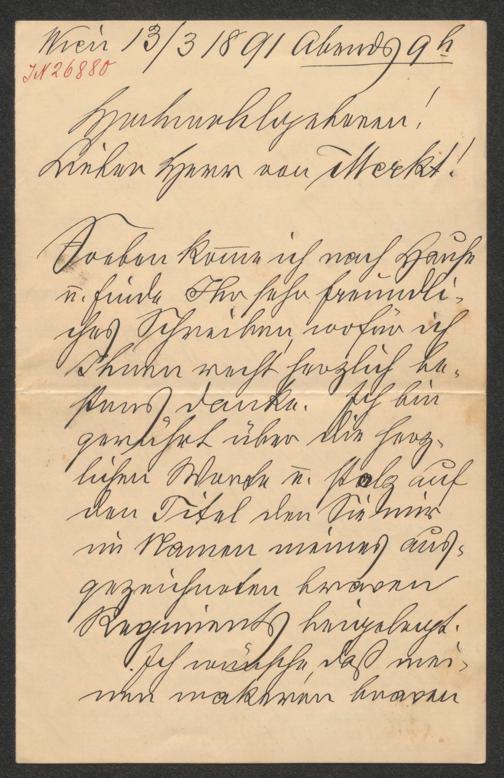 Wien 13/3 1891 Abends 9h
IN 26880
Hochwohlgeboren!
Lieber Herr von Merkt!
Soeben kome ich nach Hause
u. finde Ihr sehr freundli-
ches Schreiben, wofür ich
Ihnen recht herzlich be-
stens danke. Ich bin
gerührt über die herz-
lichen Worte u. stolz auf
den Titel den Sie mir
im Namen meines aus-
gezeichneten braven
Regiments beigelegt.
Ich wünsche, daß mei-
nen wakeren braven